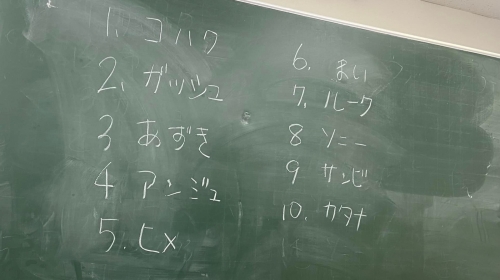 1. コハク
2. ガッシュ
3 あずき
4 アンジュ
5. ヒメ
6. まい
7. ルーク
8 ソニー
9 サンビ
10. カタナ